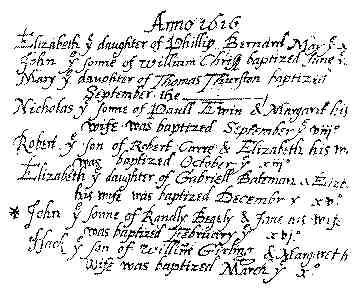 Anno 1616
Elizabeth yͤ daughter of Phillip Bernard May yͤ x
John yͤ sonne of William Christ baptized June
Mary yͤ daughter of Thomas Thurston baptized
September the
Nicholas yͤ sonne of Paull Ewin & Margaret his
wife was baptized September yͤ viijᵒ
Robert yͤ son of Robert Carre & Elizabeth his w
was baptized October yͤ xijᵒ
Elizabeth yͤ daughter of Gabriell Bateman & Eliz
his wife was baptized December yͤ xvᵒ
* John yͤ sonne of Randly Begly & Jane his wife
was baptized February yͤ xvjᵒ
yͤ son of William Girling & Margaret h
wife was baptized March yͤ xᵒ